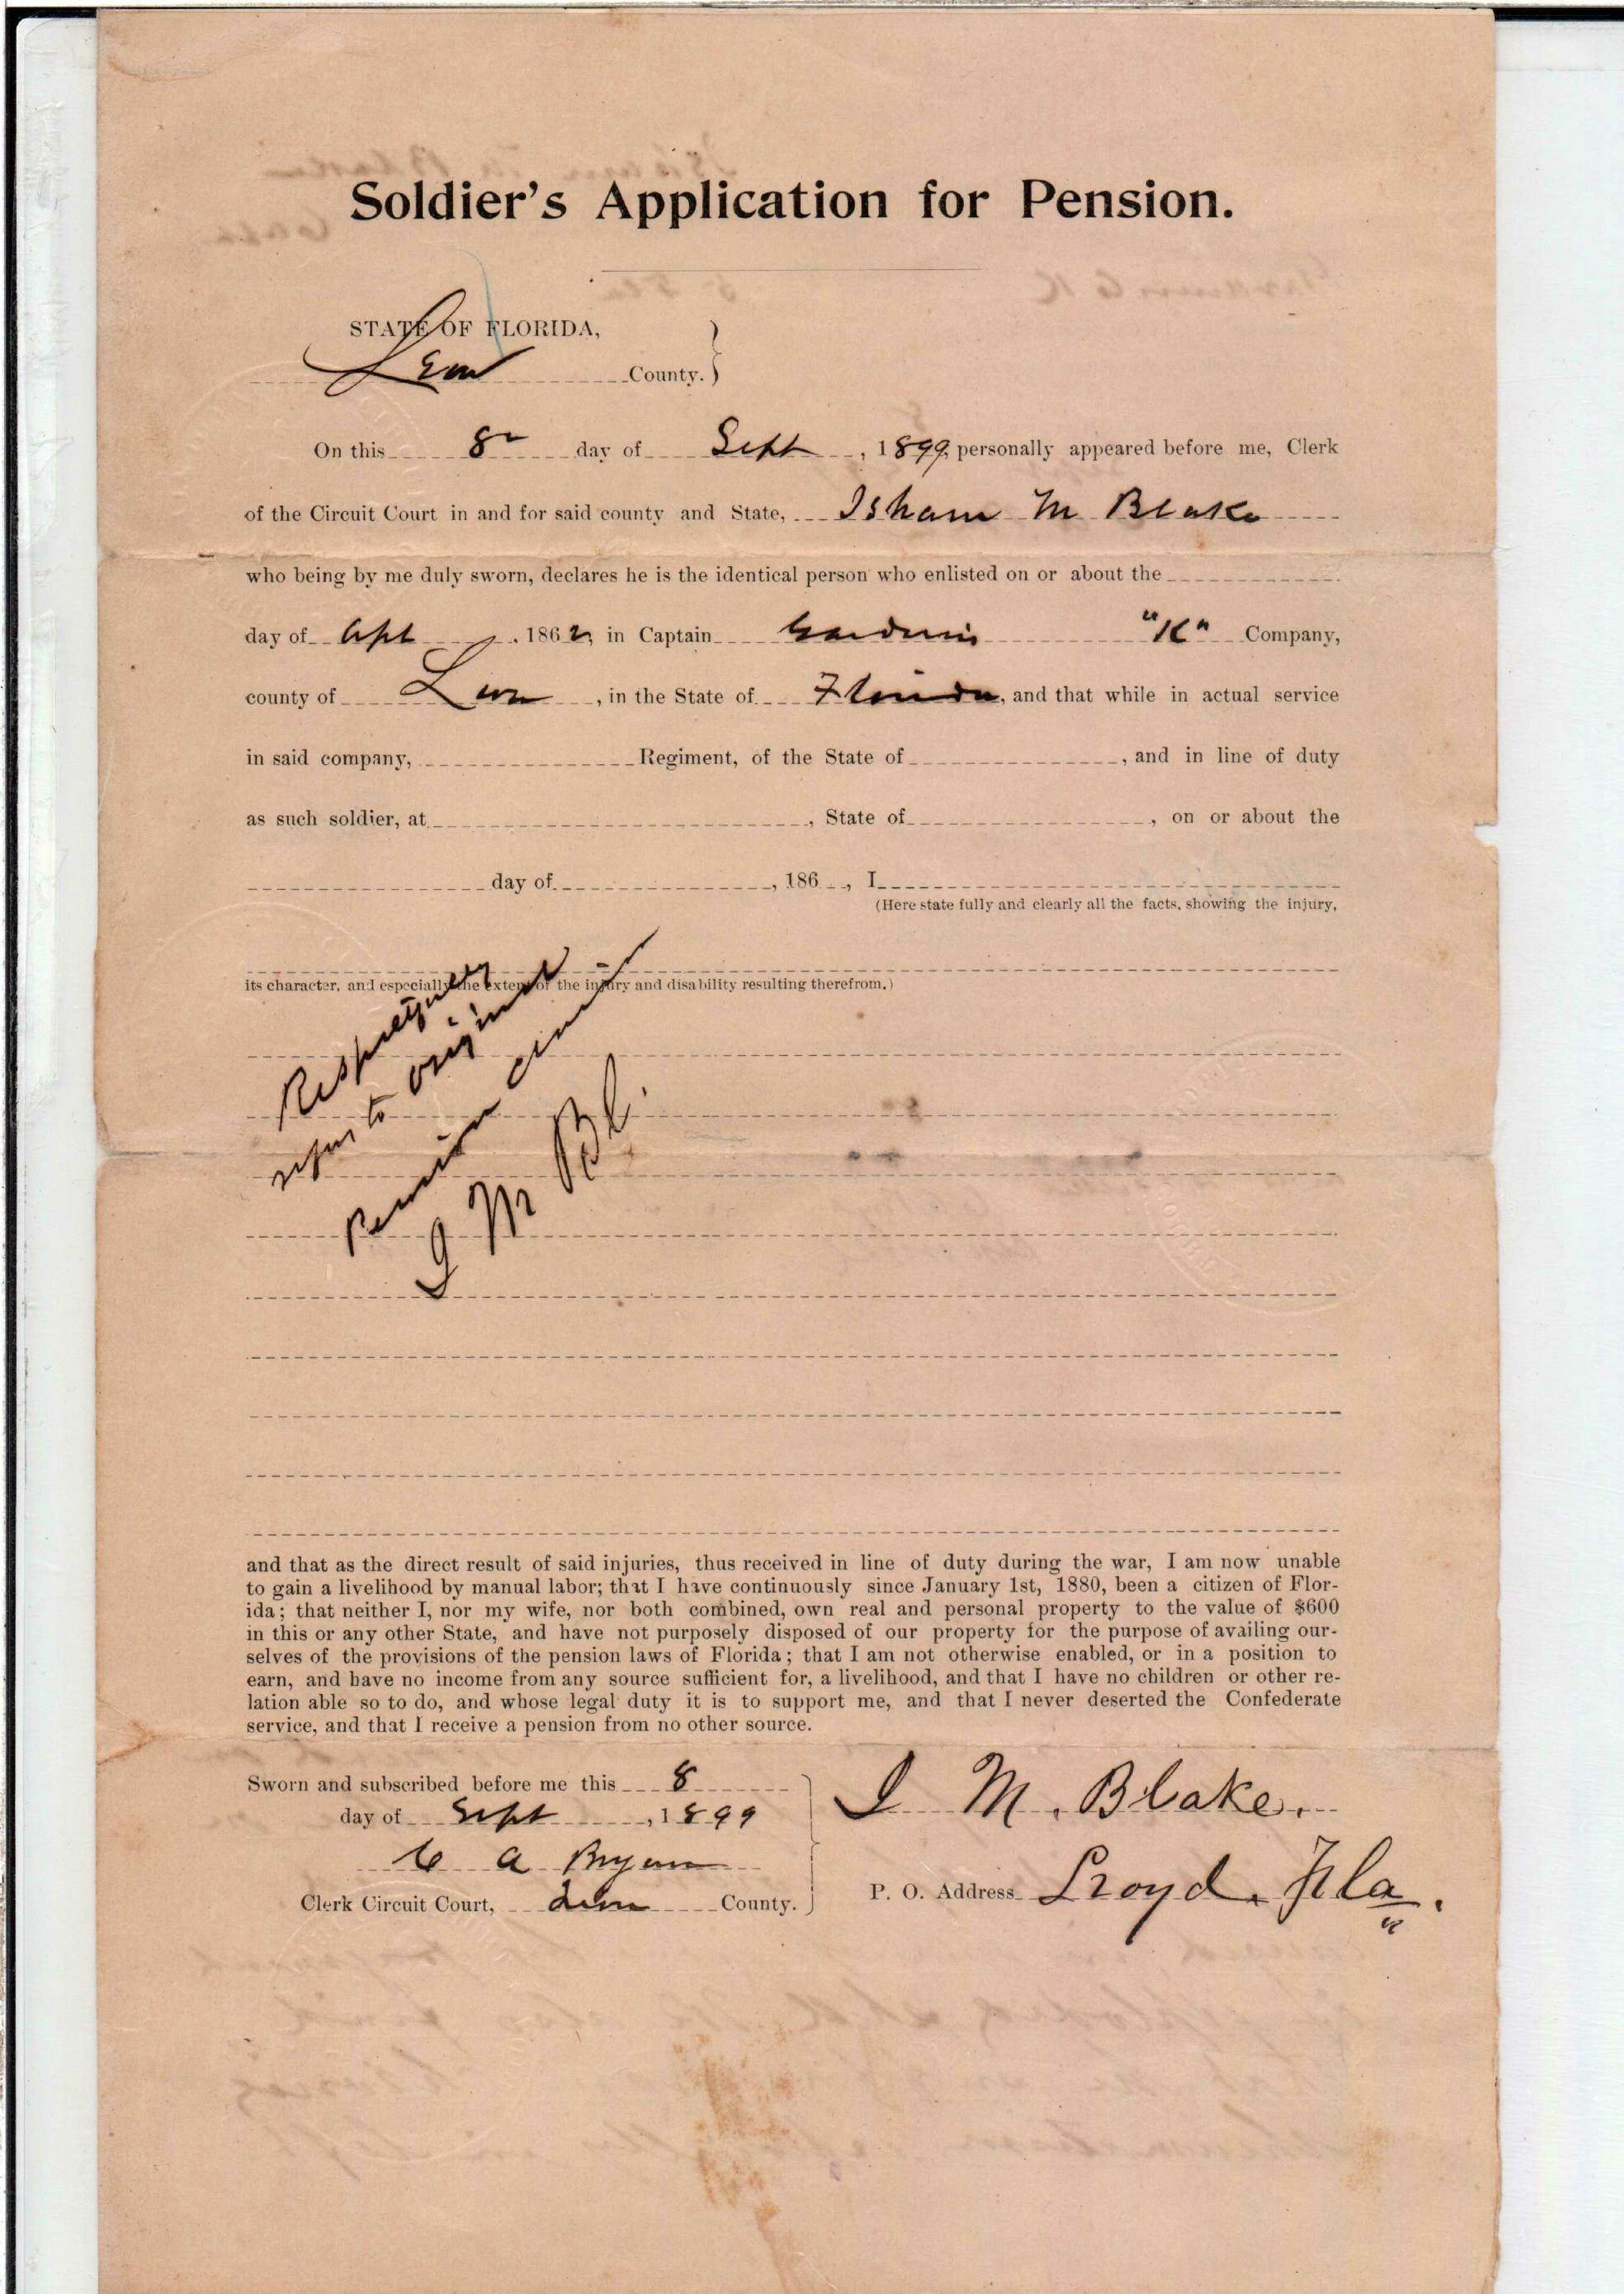 Soldier's Application for Pension.
STATE OF FLORIDA,
Leon County.
On this 8th day of Sept, 1899, personally appeared before me, Clerk
of the Circuit Court in and for said county and State, Isham M Blake
who being by me duly sworn, declares he is the identical person who enlisted on or about the
day of Apl, 1862, in Captain "K" Company,
county of Leon, in the State of Florida, and that while in actual service
in said company, Regiment, of the State of, and in line of duty
as such soldier, at, State of, on or about the
day of, 186, I
(Here state fully and clearly all the facts, showing the injury,
its character, and especially the extent of the injury and disability resulting therefrom.)
Respectfully
refer to original
Pension claim
I M Bl.
and that as the direct result of said injuries, thus received in line of duty during the war, I am now unable
to gain a livelihood by manual labor; that I have continuously since January 1st, 1880, been a citizen of Flor-
ida; that neither I, nor my wife, nor both combined, own real and personal property to the value of $600
in this or any other State, and have not purposely disposed of our property for the purpose of availing our-
selves of the provisions of the pension laws of Florida; that I am not otherwise enabled, or in a position to
earn, and have no income from any source sufficient for, a livelihood, and that I have no children or other re-
lation able so to do, and whose legal duty it is to support me, and that I never deserted the Confederate
service, and that I receive a pension from no other source.
Sworn and subscribed before me this 8
day of Sept, 1899
C A Bryan
Clerk Circuit Court, Leon County.
I M. Blake.
P. O. Address Lloyd. Fla.